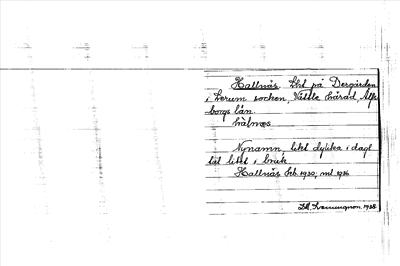 Hallnäs, lht på Dergården
i Lerum socken, Vättle härad, Älfs
borgs län.
hàlnæs
Nynamn, likt dylika i dagl
tal litet i bruk
Hallnäs hb 1930; ml 1936
1938